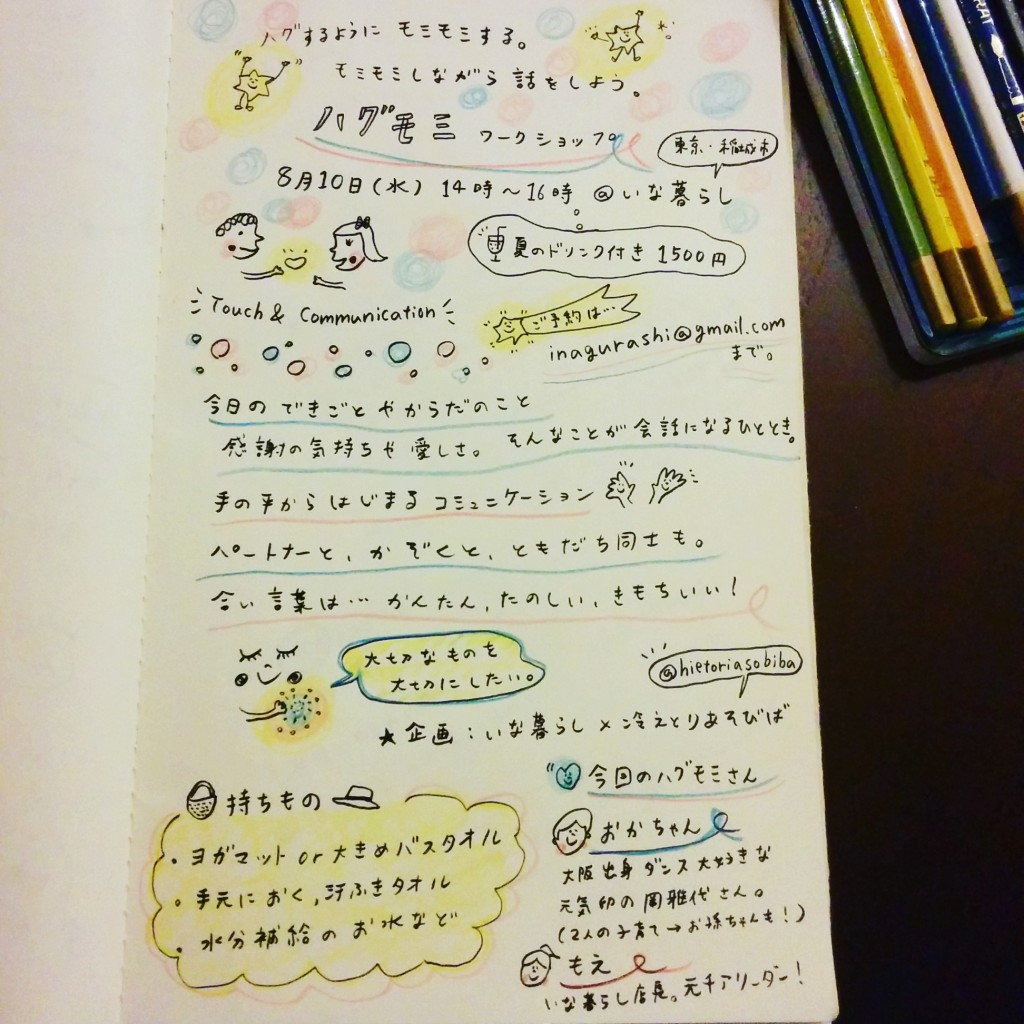 ハグするように モミモミする。
モミモミしながら 話をしよう。
ハグモミ ワークショップ
東京・稲城市
8月10日(水) 14時〜16時 @いな暮らし
夏のドリンク付き 1500円
Touch & Communication
ご予約は…
inagurashi@gmail.com
まで。
今日の できごと や からだのこと
感謝の気持ちや 愛しさ。 そんなことが 会話になるひととき。
手の平から はじまる コミュニケーション
パートナーと、かぞくと、ともだち同士も。
合い言葉は… かんたん、たのしい、きもちいい!
大切なものを
大切にしたい。
@hietoriasobiba
★企画:いな暮らし×冷えとりあそびば
今回のハグモミさん
持ちもの
・ヨガマット or 大きめバスタオル
・手元におく、汗ふきタオル
・水分補給の お水など
おかちゃん
大阪出身 ダンス 大好きな
元気印の 岡雅代さん。
(2人の子育て→お孫ちゃんも!)
もえ
いな暮らし店長。元チアリーダー!